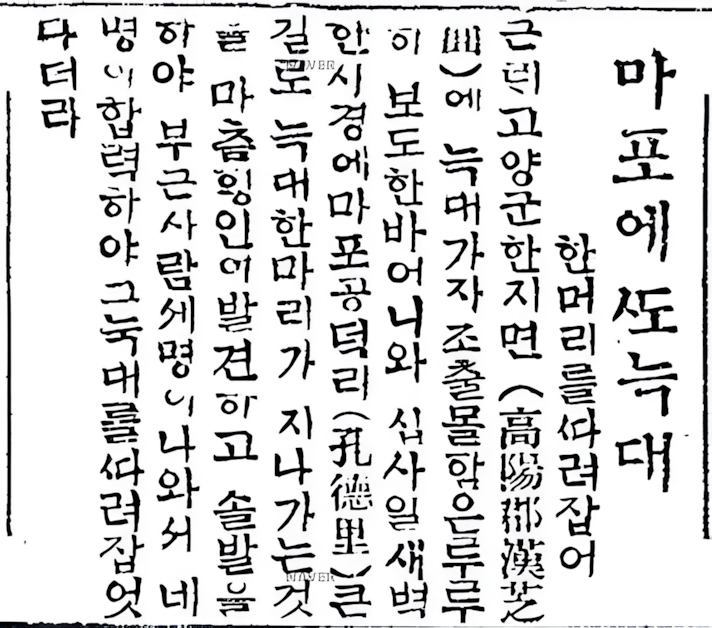 마포에ᄯᅩ늑대
한머리를ᄯᅡ려잡어
근릐고양군한지면(高陽郡漢芝
面)에 늑대가자조출몰함은루루
히 보도한바어니와 십사일새벽
한시경에마포공덕리(孔德里)큰
길로 늑대한마리가 지나가는것
을 마츰힝인이발견하고 솔발을
하야 부근사람세명이나와서 네
명이합력하야그늑대를ᄯᅡ려잡엇
다더라
NAVER
NAVER